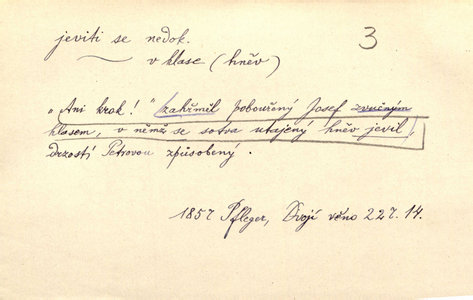 jeviti se nedok.
3
v hlase (hněv)
„Ani krok!" zahřměl pobouřený Josef zvučným
hlasem, v němž se sotva utajený hněv jevil,
drzostí Petrovou způsobený.
1857 Pfleger, Dvojí věno 227. 14.